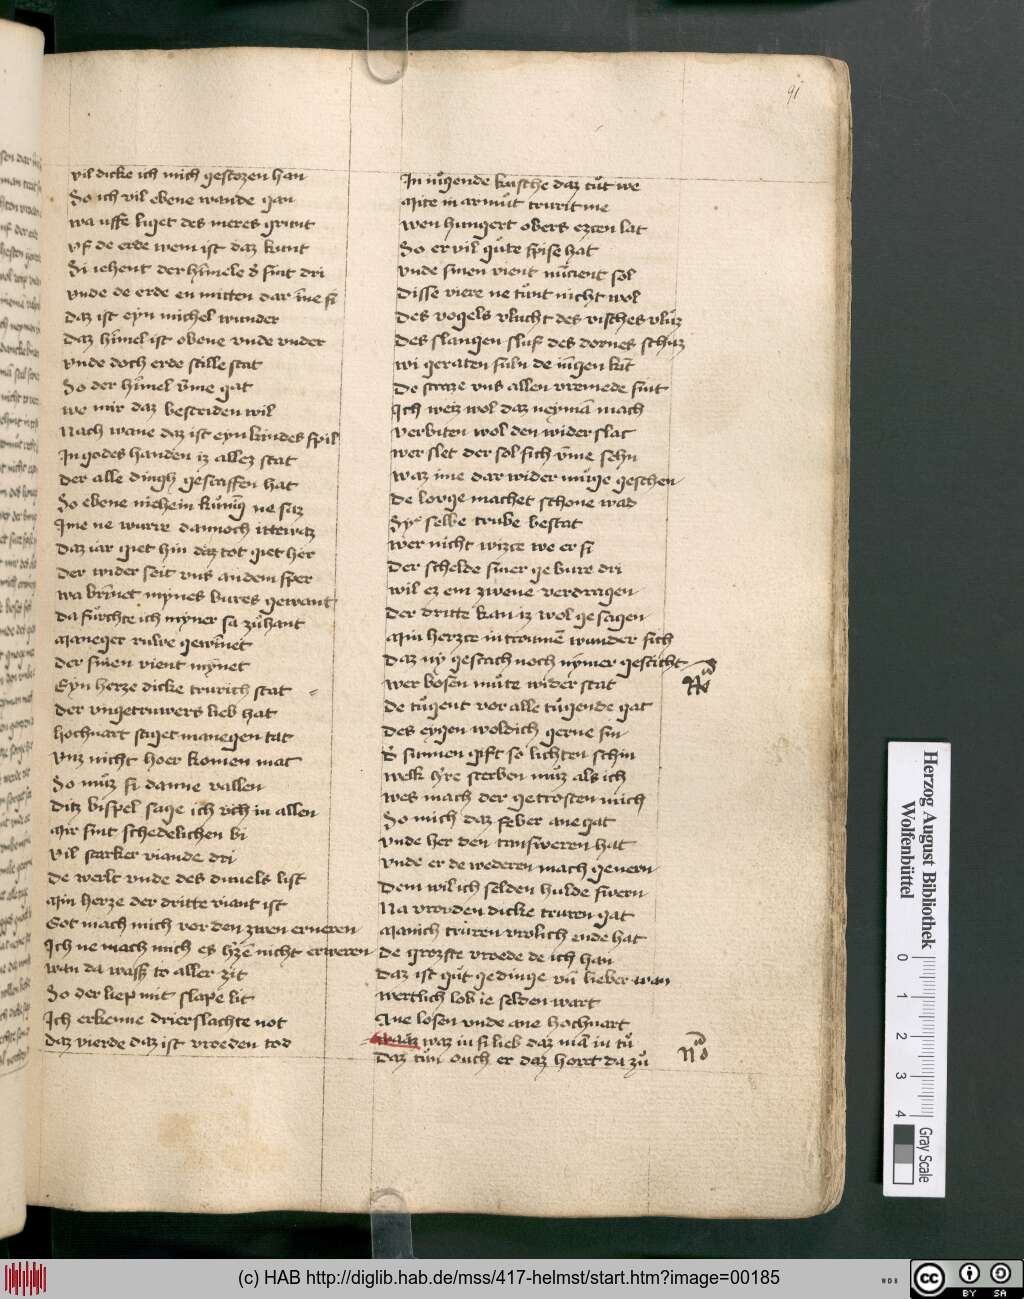 91
vil dicke ich mich gestozen han
So ich vil ebene wande gan
wa uffe liget des meres grunt
vf de erde wem ist daz kunt
Si iehent der hīmele d̕ sint dri
vnde de erde en mitten dar īne si
daz ist eyn michel wunder
daz hīmel ist obene vnde vnder
vnde doch erde stille stat
So der hīmel v̄me gat
we mir daz bescriden wil
nach wane daz ist eyn kindes spil
In godes handen iz allez stat
der alle dingh gescaffen hat
So ebene niehein kūnīg ne saz
Ime ne wurre dannoch ittewaz
daz iar get hin daz tot get her
der wider seit vns an dem sper
wa brīnet mynes bures gewant
da fůrchte ich myner sa zůhant
Maneger rulve gewīnet
der sinen vient mȳnet
Eyn herze dicke trurich stat
der vngetruwers lieb hat
hochuart stiget manegen tat
vnz nicht hoer komen mat
So můz si danne vallen
ditz bispel sage ich vch in allen
Mir sint schedelichen bi
vil starker viande dri
de werlt vnde des duuels list
Min herze der dritte viant ist
Got mach mich vor den zwen erneren
Ich ne mach mich es h̕zē nicht erweren
wan da wasz̄ to aller zit
So der liep mit slape lit
Ich erkenne drierslachte not
daz vierde daz ist vroeden tod
In iůgende kusche daz tůt we
Mite in armůt truret me
wen hungert obers ezzen lat
So er vil gůte spise hat
vnde sinen vient mīnent sol
disse viere ne tůnt nicht wol
des vogels vlucht des visches vlůz
des slangen sluf des dornes schuz
wi geraten suln de iūgen kīt
de straze vns allen vremede sint
Ich weiz wol daz neymā mach
verbiten wol den wider slac
wer slet der sol sich v̄me sehn
waz ime dar wider můge geschen
de louge machet schone wad
Sy selbe trube bestat
wer nicht wizze we er si
der schelde siner gebure dri
wil ez em zwene verdragen
der dritte kan iz wol gesagen
Min herzce in troumē wunder sich
daz ny gescach noch nymer gescicht
wer bosen můte wider stat
de tůgent vor alle tůgende gat
des eygen woldich gerne sin
d̕ sunnen gift so lichten schin
welk ere sterben můz als ich
wes mach der getrosten mich
So mich daz feber ane gat
vnde her den tansweren hat
vnde er de wederen mach geuern
dem wil ich selden hulde swern
Na vroyden dicke truren gat
Manich trůren vrolich ende hat
de grozste vroede de ich han
daz ist gůt gedinge vn̄ lieber wan
wertlich lob ie selden wart
Ane losen vnde ane hochuart
waz in si lieb daz mā in tů
daz tůn ouch er daz horet da zů
Herzog August Bibliothek
Wolfenbüttel
0 1 2 3 4
Gray Scale
(c) HAB http://diglib.hab.de/mss/417-helmst/start.htm?image=00185
WDB
cc BY SA